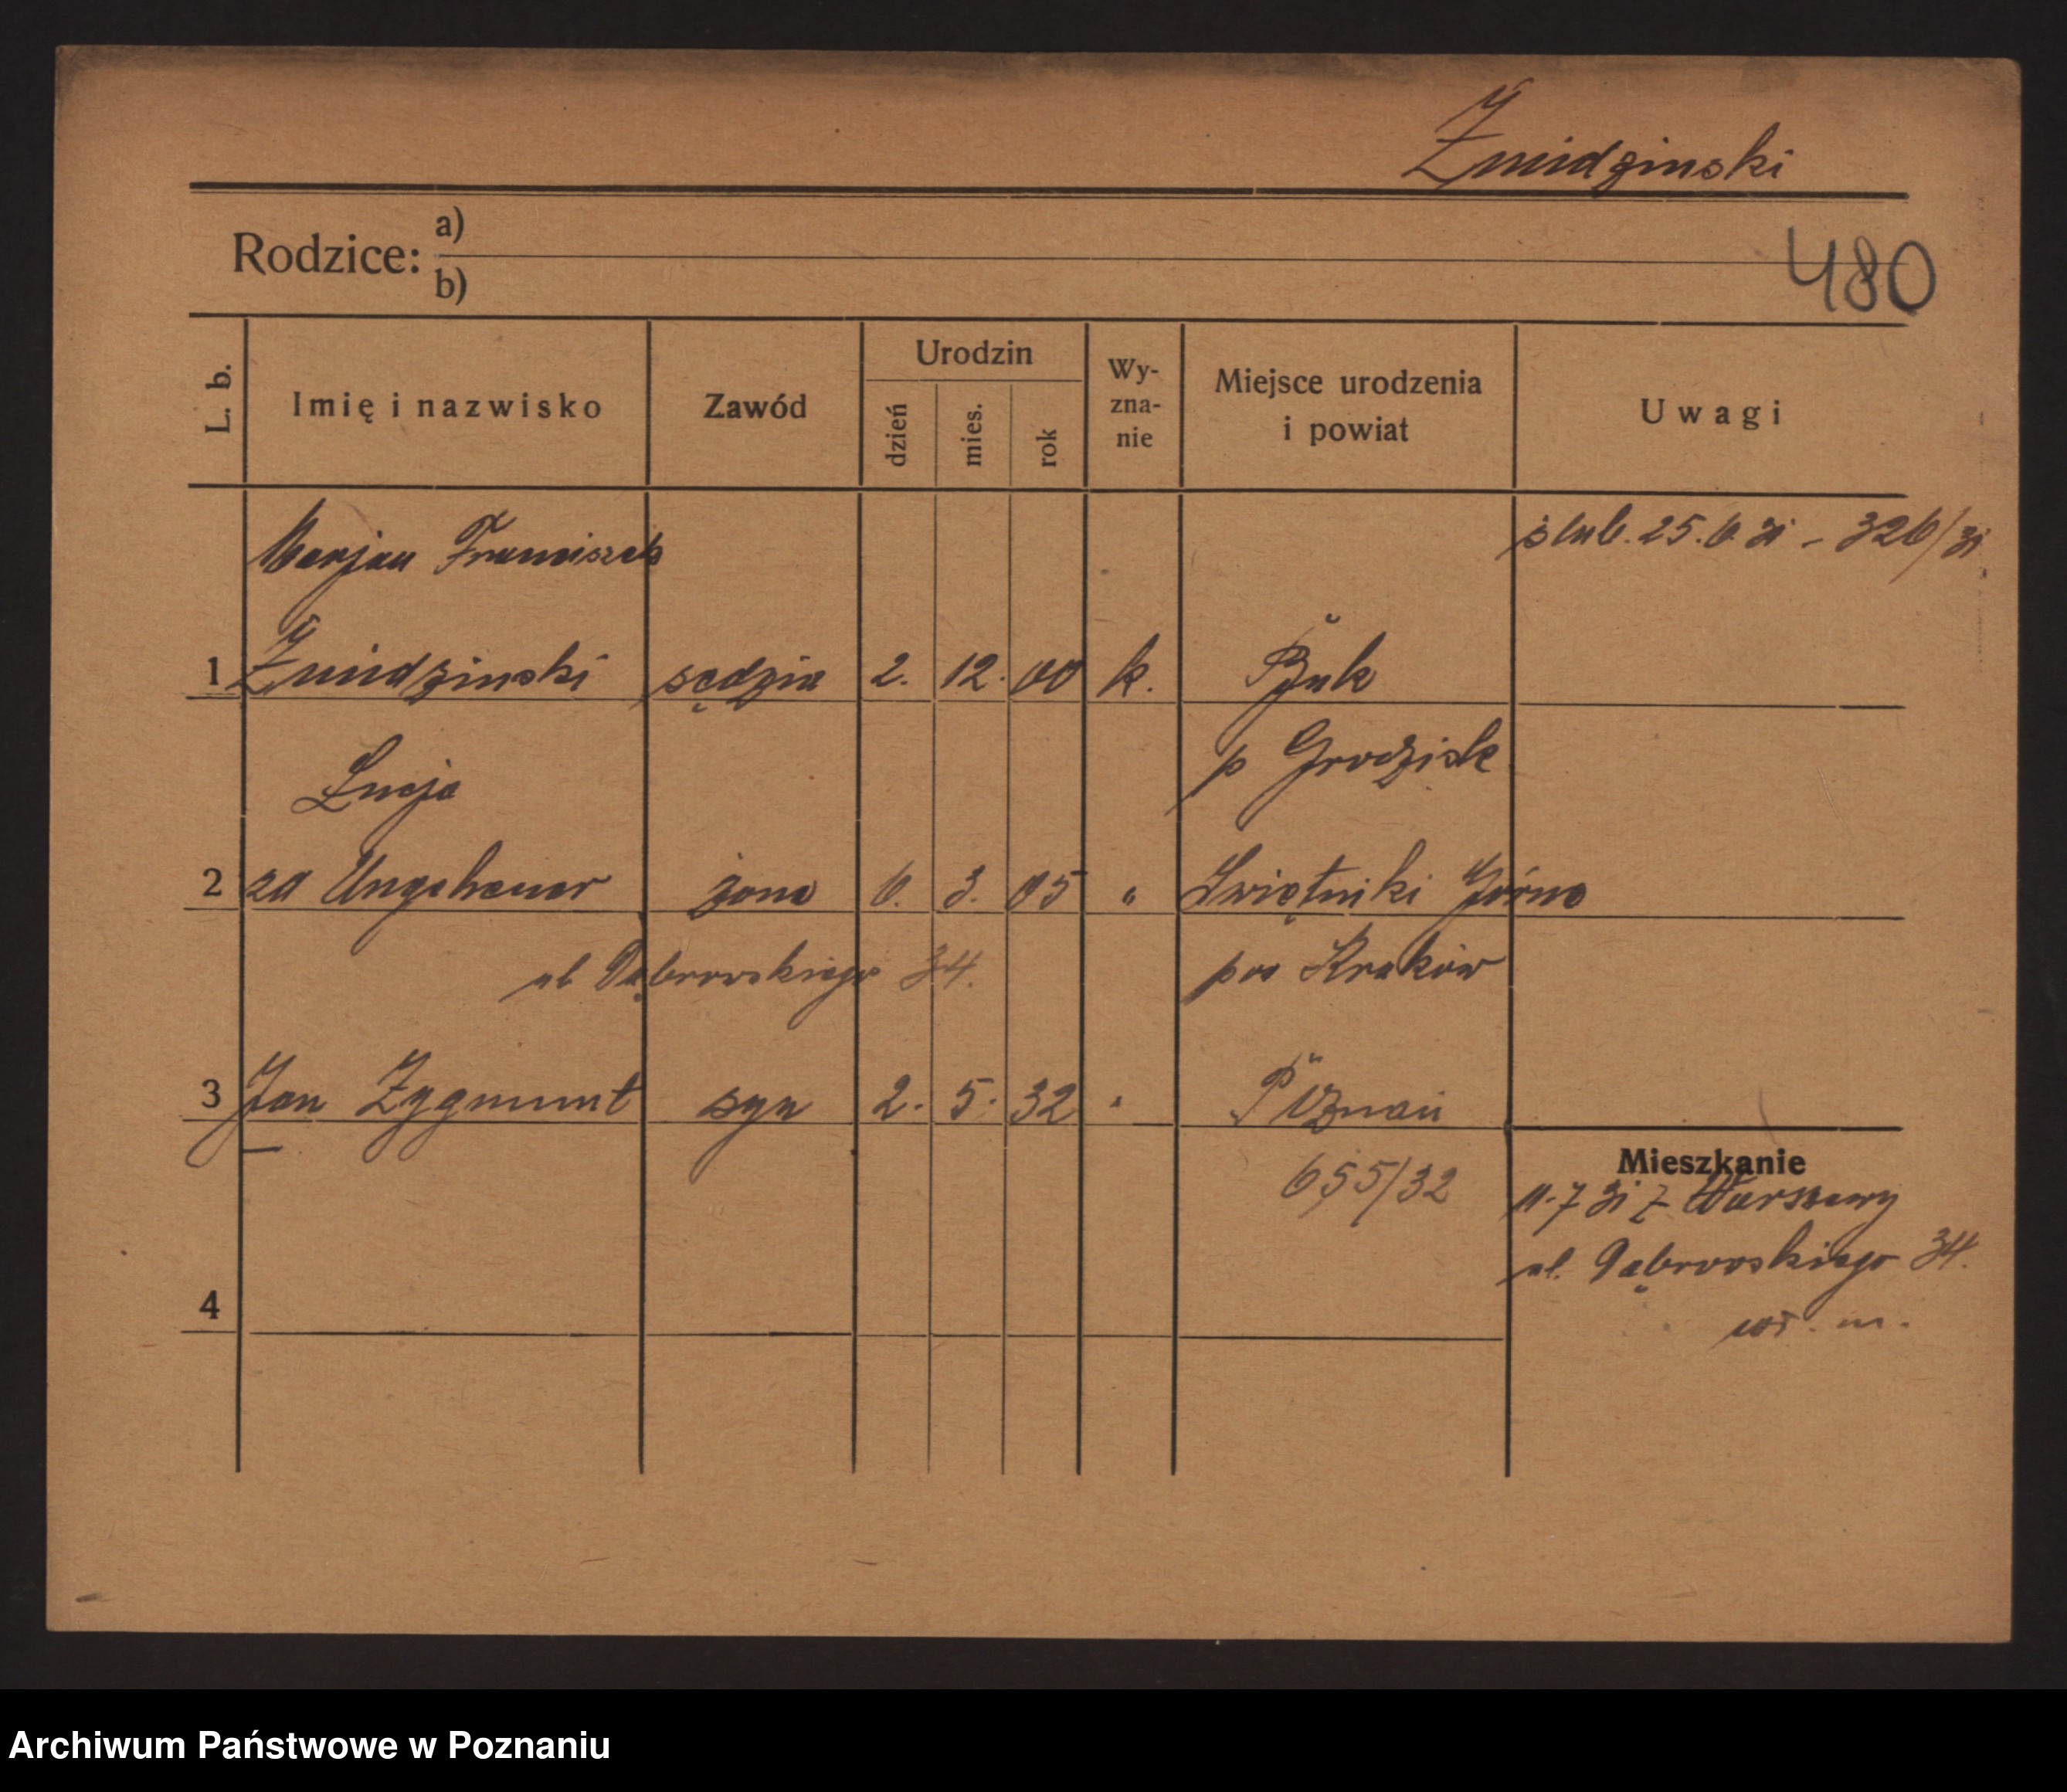 Żmidzinski
Rodzice: a)
b)
480
L. b.
Imię i nazwisko
Zawód
Urodzin
dzień
mies.
rok
Wy-
zna-
nie
Miejsce urodzenia
i powiat
Uwagi
Marjan Franciszek
ślub. 25.6.31 - 326/31
1 Żmidzinski sędzia 2. 12. 00 k. Buk
p Grodzisk
Lucja
2 zd Ungeheuer żona 6. 3. 05 " Świętniki Górne
ul Dąbrowskiego 34. pow Kraków
3 Jan Zygmunt syn 2. 5. 32 " Poznań
655/32
Mieszkanie
11.7 31 z Warszawy
ul. Dąbrowskiego 34.
wł. m.
4
Archiwum Państwowe w Poznaniu